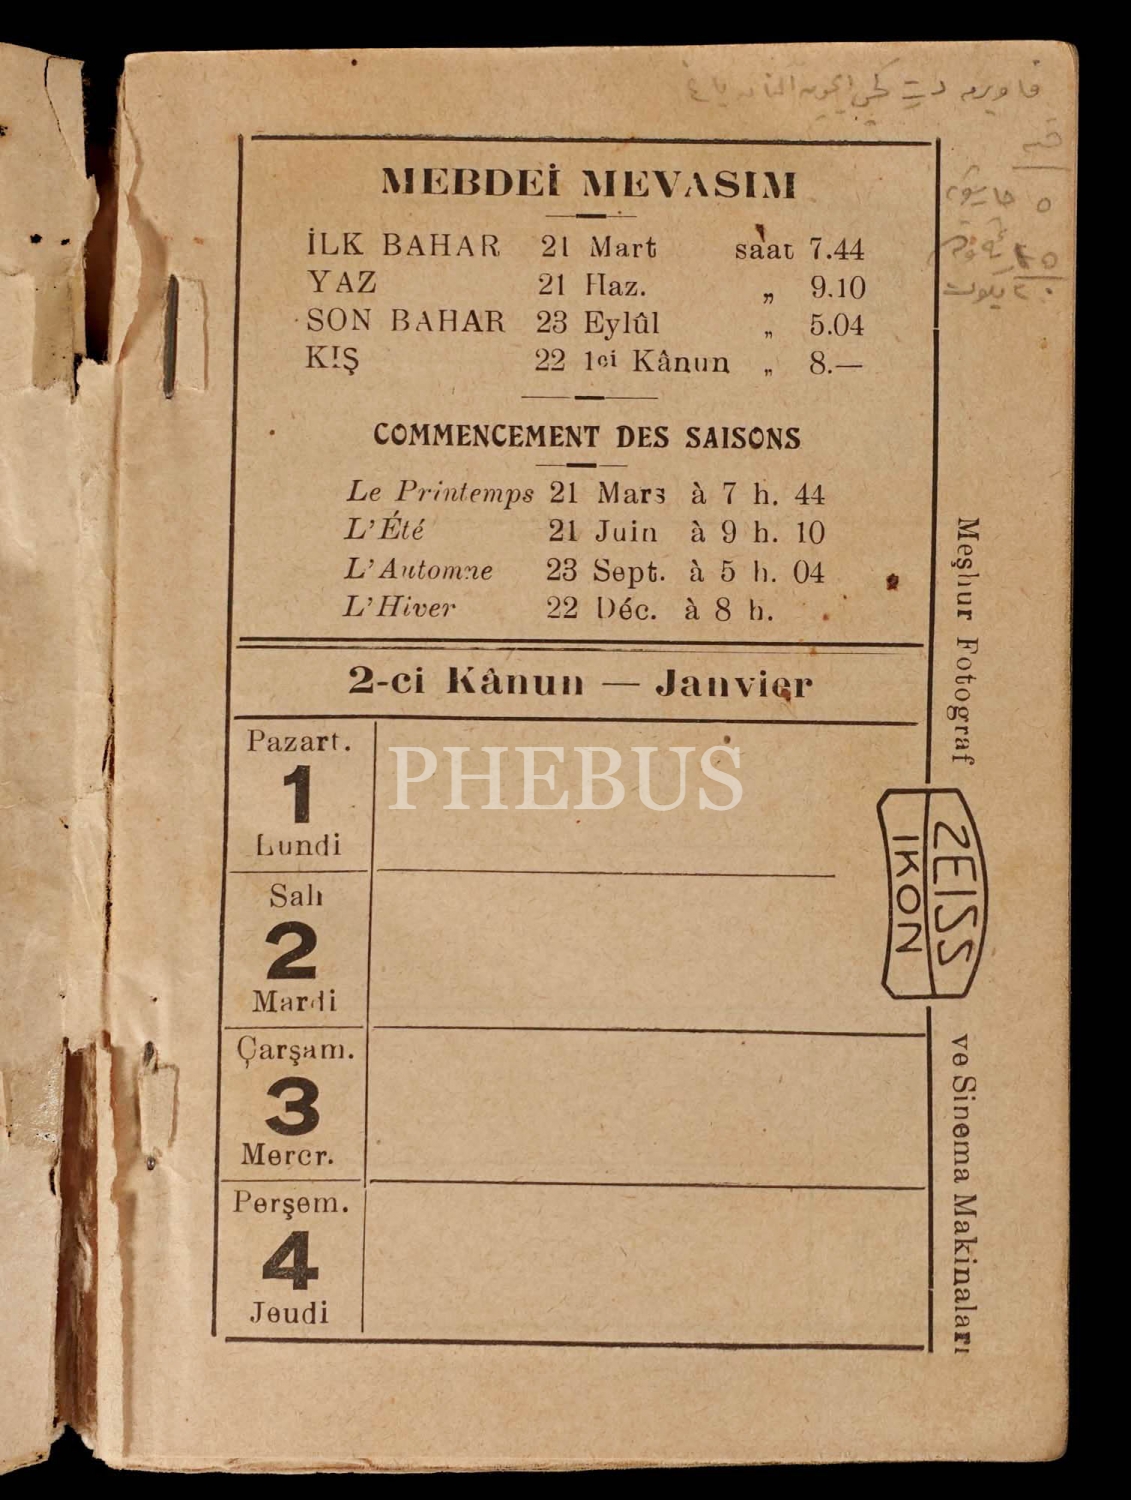 MEBDEİ MEVASIM
İLK BAHAR 21 Mart saat 7.44
YAZ 21 Haz. „ 9.10
SON BAHAR 23 Eylûl „ 5.04
KIŞ 22 1ci Kânun „ 8.—
COMMENCEMENT DES SAISONS
Le Printemps 21 Mars à 7 h. 44
L'Été 21 Juin à 9 h. 10
L'Automne 23 Sept. à 5 h. 04
L'Hiver 22 Déc. à 8 h.
2-ci Kânun — Janvier
Pazart.
1
Lundi
Salı
2
Mardi
Çarşam.
3
Mercr.
Perşem.
4
Jeudi
PHEBUS
Meşhur Fotograf
ZEISS
IKON
ve Sinema Makinaları